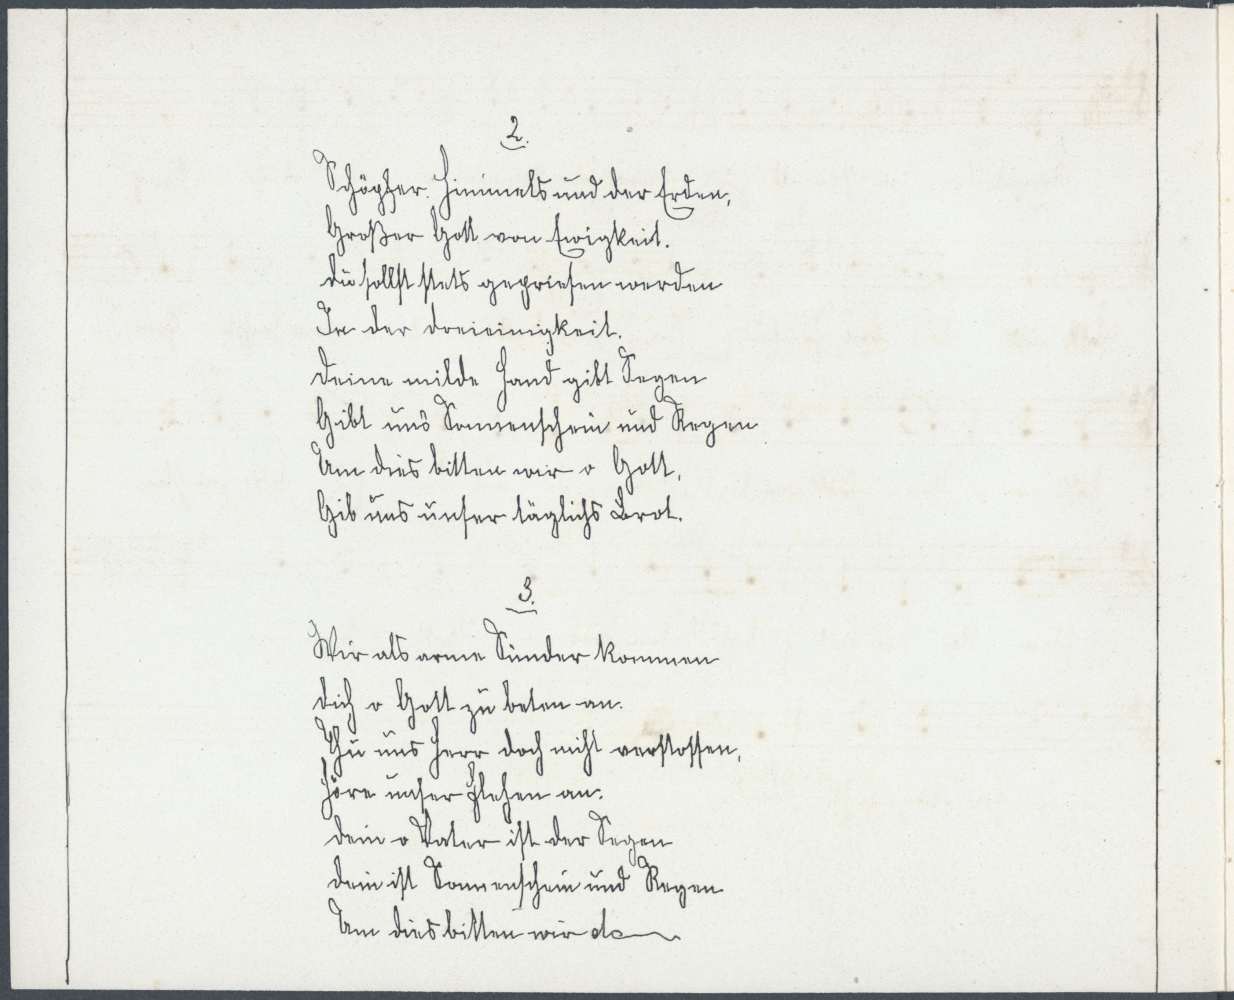 2.
Schöpfer Himmels und der Erden,
Großer Gott von Ewigkeit.
du sollst stets gepriesen werden
In der dreieinigkeit.
deine milde Hand gibt Segen
Gibt uns Sonnenschein und Regen
Um dies bitten wir o Gott,
Gib uns unser täglichs Brot.
3.
Wir als arme Sünder kommen
dich o Gott zu beten an.
Thu uns Herr doch nicht verstossen,
Höre unser Flehen an.
dein o Vater ist der Segen
dein ist Sonnenschein und Regen
Um dies bitten wir